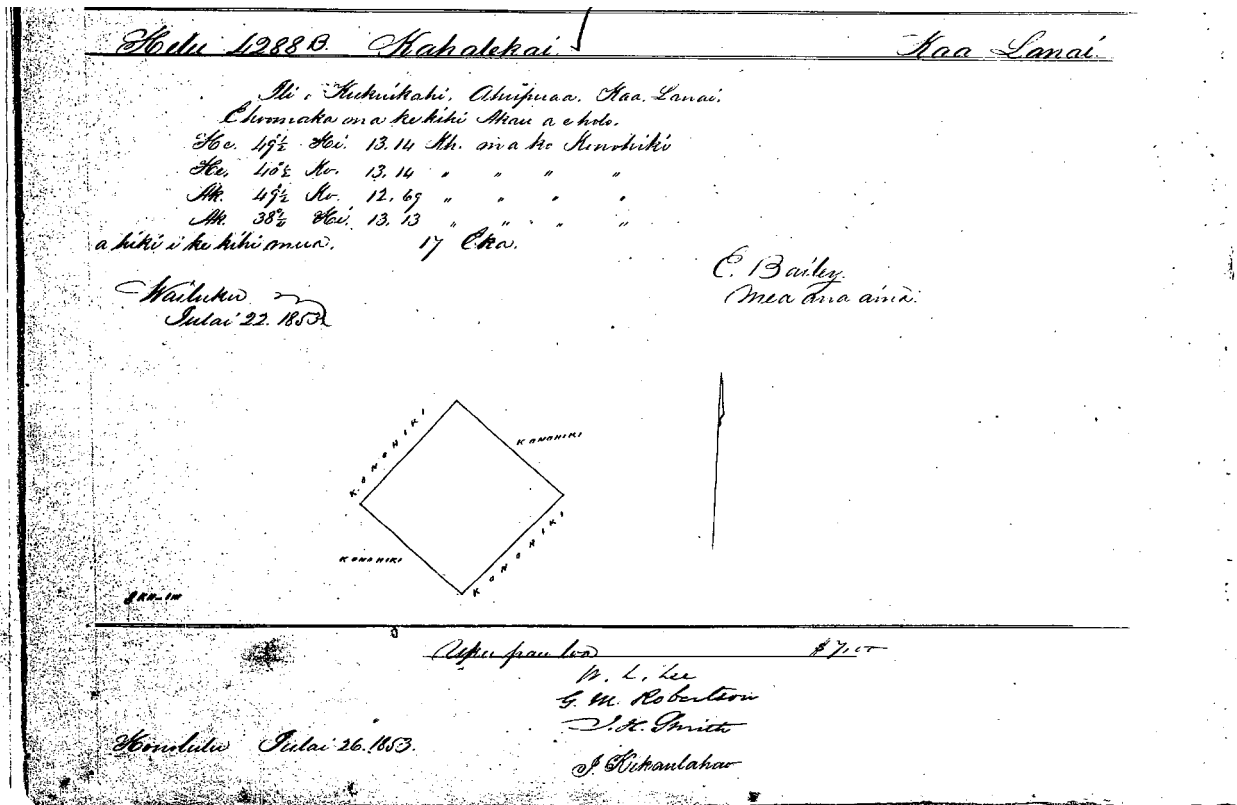 Helu 4288 B. Kahalekai Kaa Lanai.
Ili o Kukuikahi, Ahupuaa. Kaa. Lanai.
E hoomaka ma ke kihi Akau a e holo.
He. 49½ Hi. 13.14 Kh. ma ko Konohiki
He. 40½ Ko. 13.14 " " " "
Ak. 49½ Ko. 12.69 " " " "
Ak. 38½ Hi. 13.13 " " " "
a hiki i ke kihi mua. 17 Eka.
E. Bailey.
Mea ana aina.
Wailuku
Iulai 22. 1853
KONOHIKI
KONOHIKI
KONOHIKI
KONOHIKI
Uku pau loa $7.00
W. L. Lee
G. M. Robertson
J. H. Smith
Honolulu Iulai 26. 1853.
J. Kekaulahao